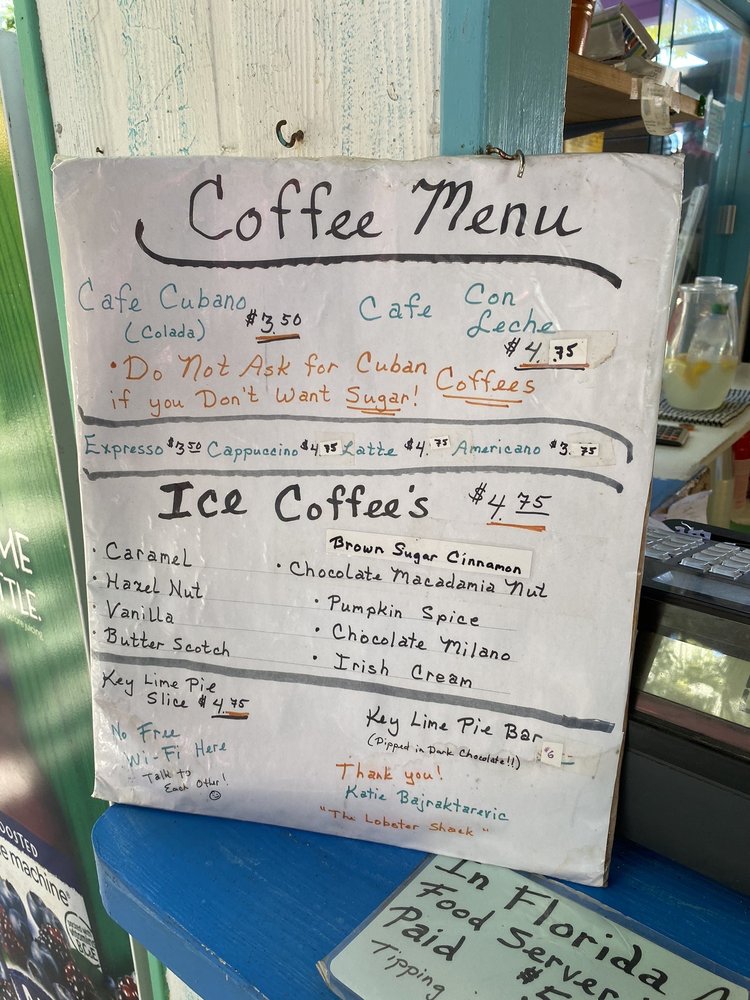 Coffee Menu
Cafe Cubano
(Colada)
$3.50
Cafe Con
Leche
$4.75
• Do Not Ask for Cuban Coffees
if you Don't Want Sugar!
Expresso $3.50 Cappuccino $4.75 Latte $4.75 Americano $3.75
Ice Coffee's $4.75
• Caramel
• Hazel Nut
• Vanilla
• Butter Scotch
Brown Sugar Cinnamon
• Chocolate Macadamia Nut
• Pumpkin Spice
• Chocolate Milano
• Irish Cream
Key Lime Pie
Slice $4.75
No Free
Wi-Fi Here
Talk to
Each Other!
Key Lime Pie Bar
(Dipped in Dark Chocolate!!) $6
Thank you!
Katie Bajraktarevic
"The Lobster Shack"
In Florida
Food Server
Paid
Tipping
ME
TLE.
OOSTED
e machine